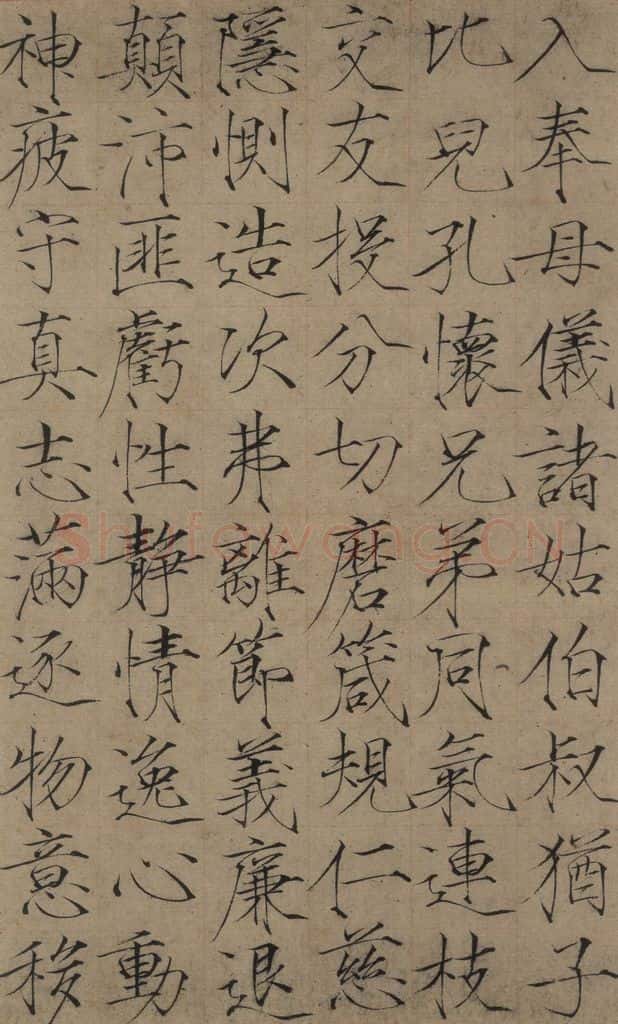 入奉母儀諸姑伯叔猶子
比兒孔懷兄弟同氣連枝
交友投分切磨箴規仁慈
隱惻造次弗離節義廉退
顛沛匪虧性靜情逸心動
神疲守真志滿逐物意移
Shufawang.CN